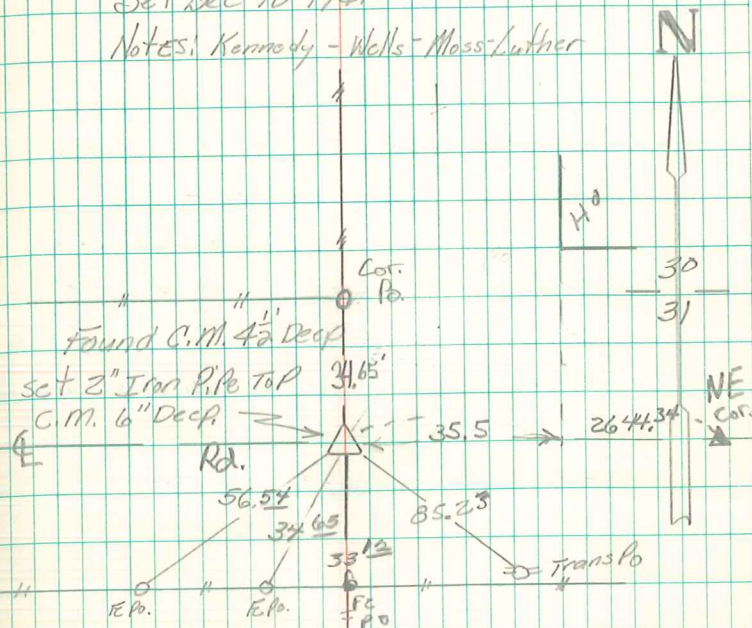 Set Dec 10
Notes: Kennedy - Wells - Moss - Luther
N
Hº
30
31
Cor.
Po.
Found C.M. 4½' Deep
set 2" Iron Pipe Top
C.M. 6" Deep.
34.65'
NE
Cor.
2644.34
35.5
℄
Rd.
56.54
34.65
85.23
33.12
Trans Po
FE Po.
FE Po.
FE
PO